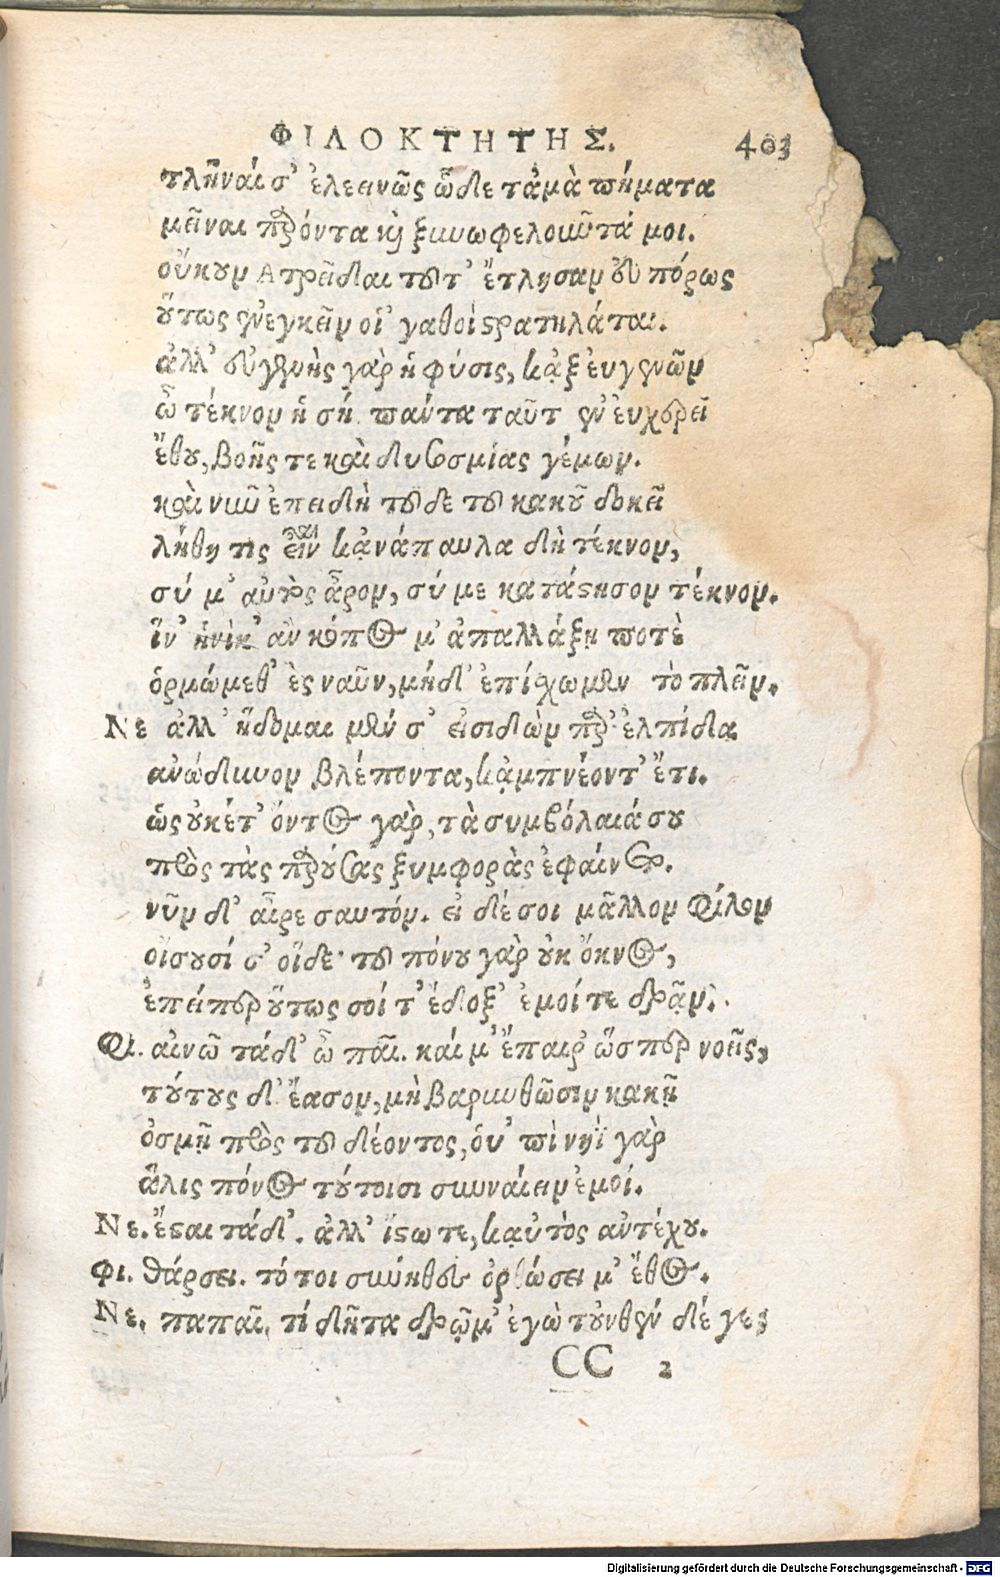 ΦΙΛΟΚΤΗΤΗΣ. 403
τλῆναί σ' ἐλεεινῶς ὧδε τἀμὰ πήματα
μεῖναι παρόντα καὶ ξυνωφελοῦντά μοι.
οὔκουν Ἀτρεῖδαι τοῦτ' ἔτλησαν εὐπόρως
οὕτως ἐνεγκεῖν οἱ' γαθοὶ στρατηλάται.
ἀλλ' εὐγενὴς γὰρ ἡ φύσις, κᾀξ εὐγενῶν
ὦ τέκνον ἡ σή. πάντα ταῦτ ἐν εὐχερεῖ
ἔθου, βοῆς τε καὶ δυσοσμίας γέμων.
καὶ νῦν ἐπειδὴ τοῦδε τοῦ κακοῦ δοκεῖ
λήθη τις εἶναι κᾀνάπαυλα δὴ τέκνον,
σύ μ' αὐτὸς ἆρον, σύ με κατάστησον τέκνον.
ἵν' ἡνίκ' ἂν κόπος μ' ἀπαλλάξῃ ποτὲ
ὁρμώμεθ' ἐς ναῦν, μήδ' ἐπίσχωμεν τὸ πλεῖν.
Νε ἀλλ' ἥδομαι μέν σ' εἰσιδὼν παρ' ἐλπίδα
ἀνώδυνον βλέποντα, κᾀμπνέοντ' ἔτι.
ὡς οὐκέτ' ὄντος γὰρ, τὰ συμβόλαιά σου
πρὸς τὰς παρούσας ξυμφορὰς ἐφαίνετο.
νῦν δ' αἶρε σαυτόν. εἰ δέ σοι μᾶλλον φίλον
οἴσουσί σ' οἵδε· τοῦ πόνου γὰρ οὐκ ὄκνος,
ἐπείπερ οὕτως σοί τ' ἔδοξ' ἐμοί τε δρᾷν.
Φι. αἰνῶ τάδ' ὦ παῖ. καί μ' ἔπαιρ' ὥσπερ νοεῖς,
τούτους δ' ἔασον, μὴ βαρυνθῶσιν κακῇ
ὀσμῇ πρὸς τοῦ δέοντος, οὑ' πὶ νηῒ γὰρ
ἅλις πόνος τούτοισι συνναίειν ἐμοί.
Νε. ἔσται τάδ'. ἀλλ' ἵστω τε, κᾀυτὸς ἀντέχου.
Φι. θάρσει. τό τοι σύνηθες ὀρθώσει μ' ἔθος.
Νε. παπαῖ, τί δῆτα δρῷμ' ἐγὼ τοὐνθένδέ γε;
CC 2
Digitalisierung gefördert durch die Deutsche Forschungsgemeinschaft - DFG